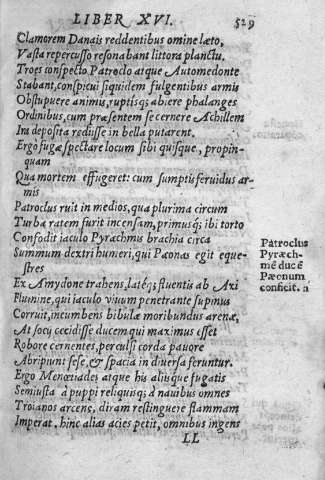 LIBER XVI. 529
Clamorem Danais reddentibus omine læto,
Vasta repercusso resonabant littora planctu,
Troes conspecto Patroclo atque Automedonte
Stabant, conspicui siquidem fulgentibus armis
Obstupuere animis, ruptisq; abiere phalanges
Ordinibus, cum præsentem se cernere Achillem
Im deposita redijsse in bella putarent.
Ergo fugæ spectare locum sibi quisque, propin-
quam
Qua mortem effugeret: cum sumptis feruidus ar-
mis
Patroclus ruit in medios, qua plurima circum
Turba ratem furit incensam, primusq; ibi torto
Confodit iaculo Pyræchmis brachia circa
Summum dextri humeri, qui Pæonas egit eque-
stres
Ex Amydone trahens, latéq; fluentis ab Axi
Flumine, qui iaculo viuum penetrante supinus
Corruit, incumbens bibulæ moribundus arenæ,
At socij cecidisse ducem qui maximus esset
Robore cernentes, perculsi corda pauore
Abripiunt sese, & spacia in diuersa feruntur.
Ergo Menœtiades atque his alijsque fugatis
Semiusta à puppi reliquisq; à nauibus omnes
Troianos arcens, diram restinguere flammam
Imperat, hinc alias acies petit, omnibus ingens
LL
Patroclus
Pyræch-
mē ducē
Pæonum
conficit.